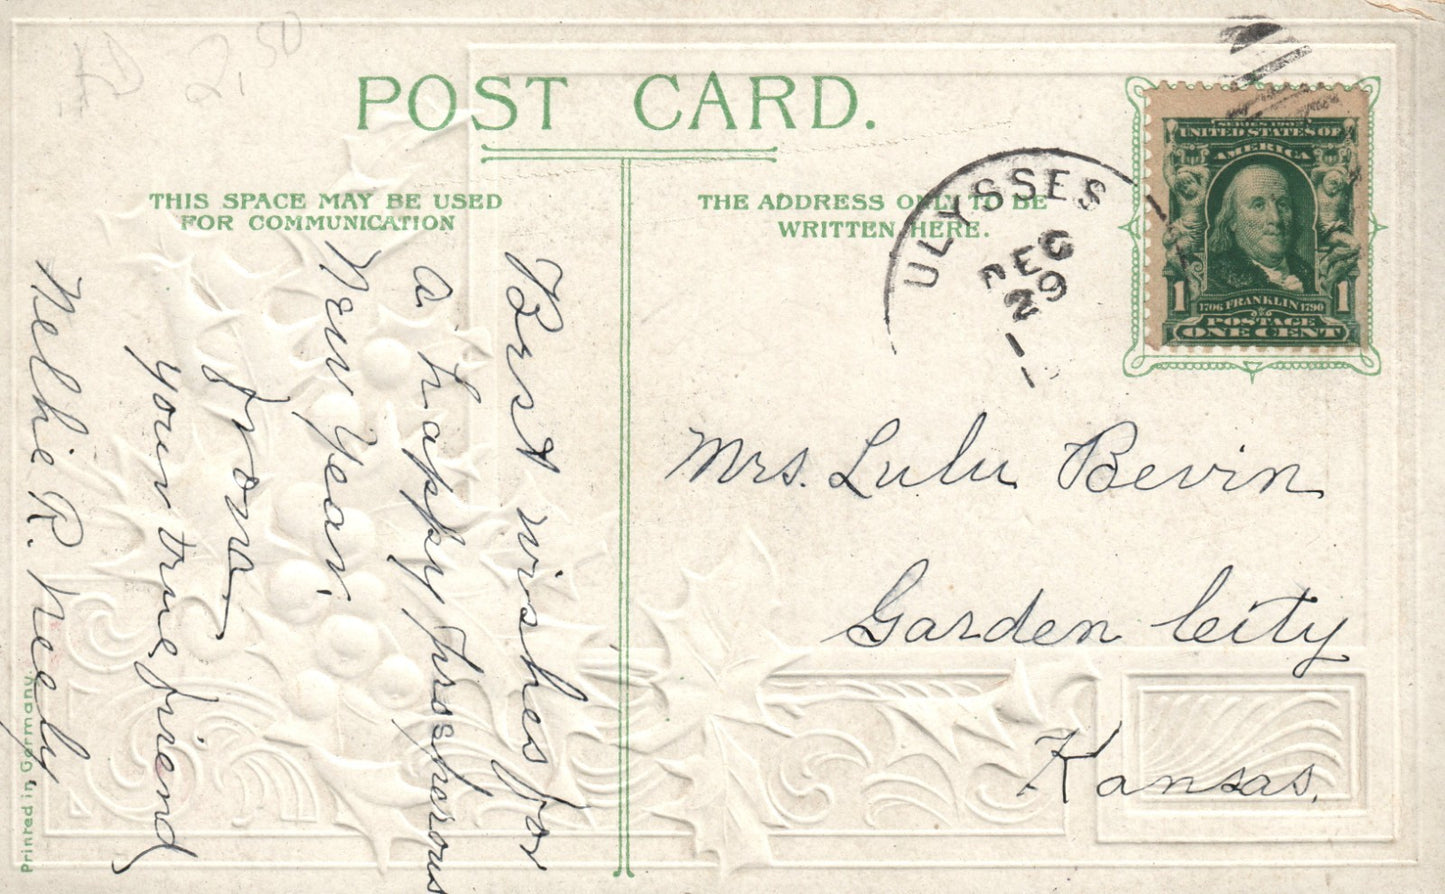 2.50
POST CARD.
THIS SPACE MAY BE USED
FOR COMMUNICATION
THE ADDRESS ONLY TO BE
WRITTEN HERE.
ULYSSES
DEC
29
1
SERIES 1902
UNITED STATES OF
AMERICA
1 1706 FRANKLIN 1790 1
POSTAGE
ONE CENT
Best wishes for
a happy prosperous
New Year.
From
your true friend,
Nellie R. Neely,
Mrs. Lulu Bevin
Garden City
Kansas.
Printed in Germany.